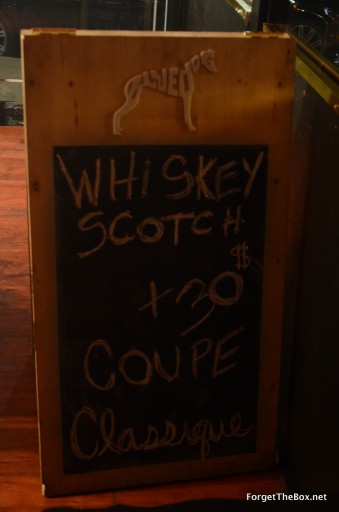 BLUEDOG
WHiSKEY
SCOTCH
+30$
COUPE
Classique
ForgetTheBox.net